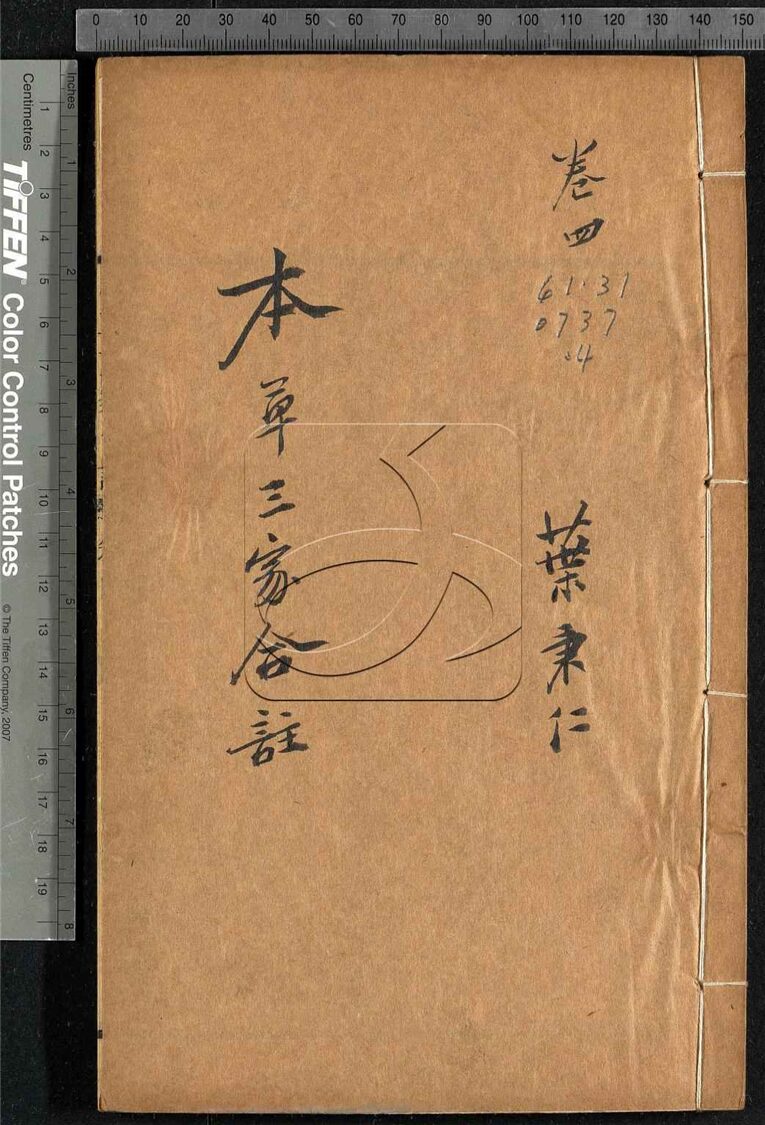 卷四
61.31
0737
.4
葉秉仁
本草三家合註
0 10 20 30 40 50 60 70 80 90 100 110 120 130 140 150
Inches
1 2 3 4 5 6 7 8
Centimetres
1 2 3 4 5 6 7 8 9 10 11 12 13 14 15 16 17 18 19
TIFFEN Color Control Patches
© The Tiffen Company, 2007